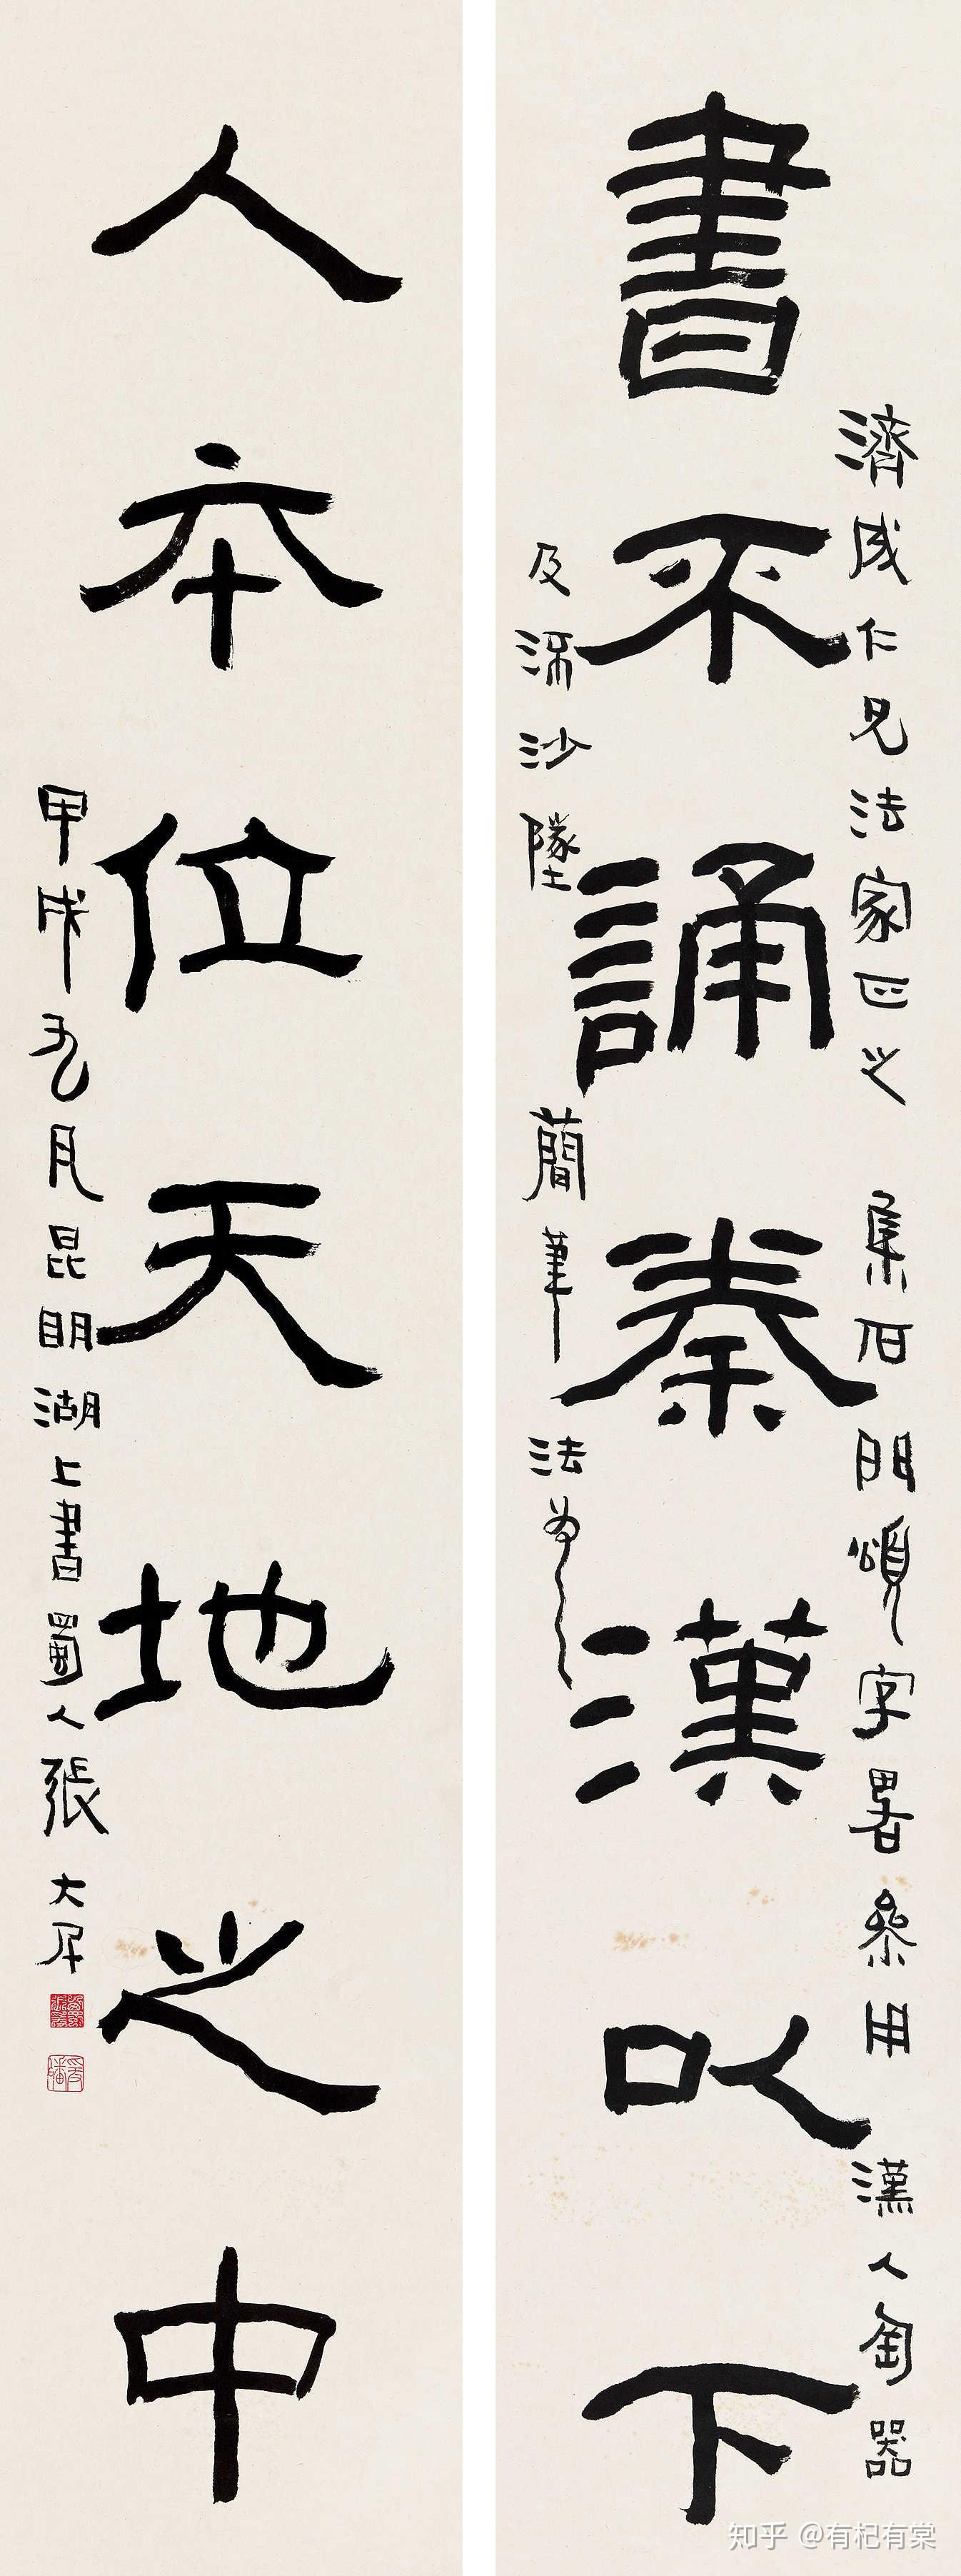 書不誦秦漢以下
濟成仁兄法家正之 集石門頌字畧參用漢人匋器
及流沙墜簡筆法為之
人本位天地之中
甲戌九月昆明湖上書蜀人張大千
知乎 @有杞有棠